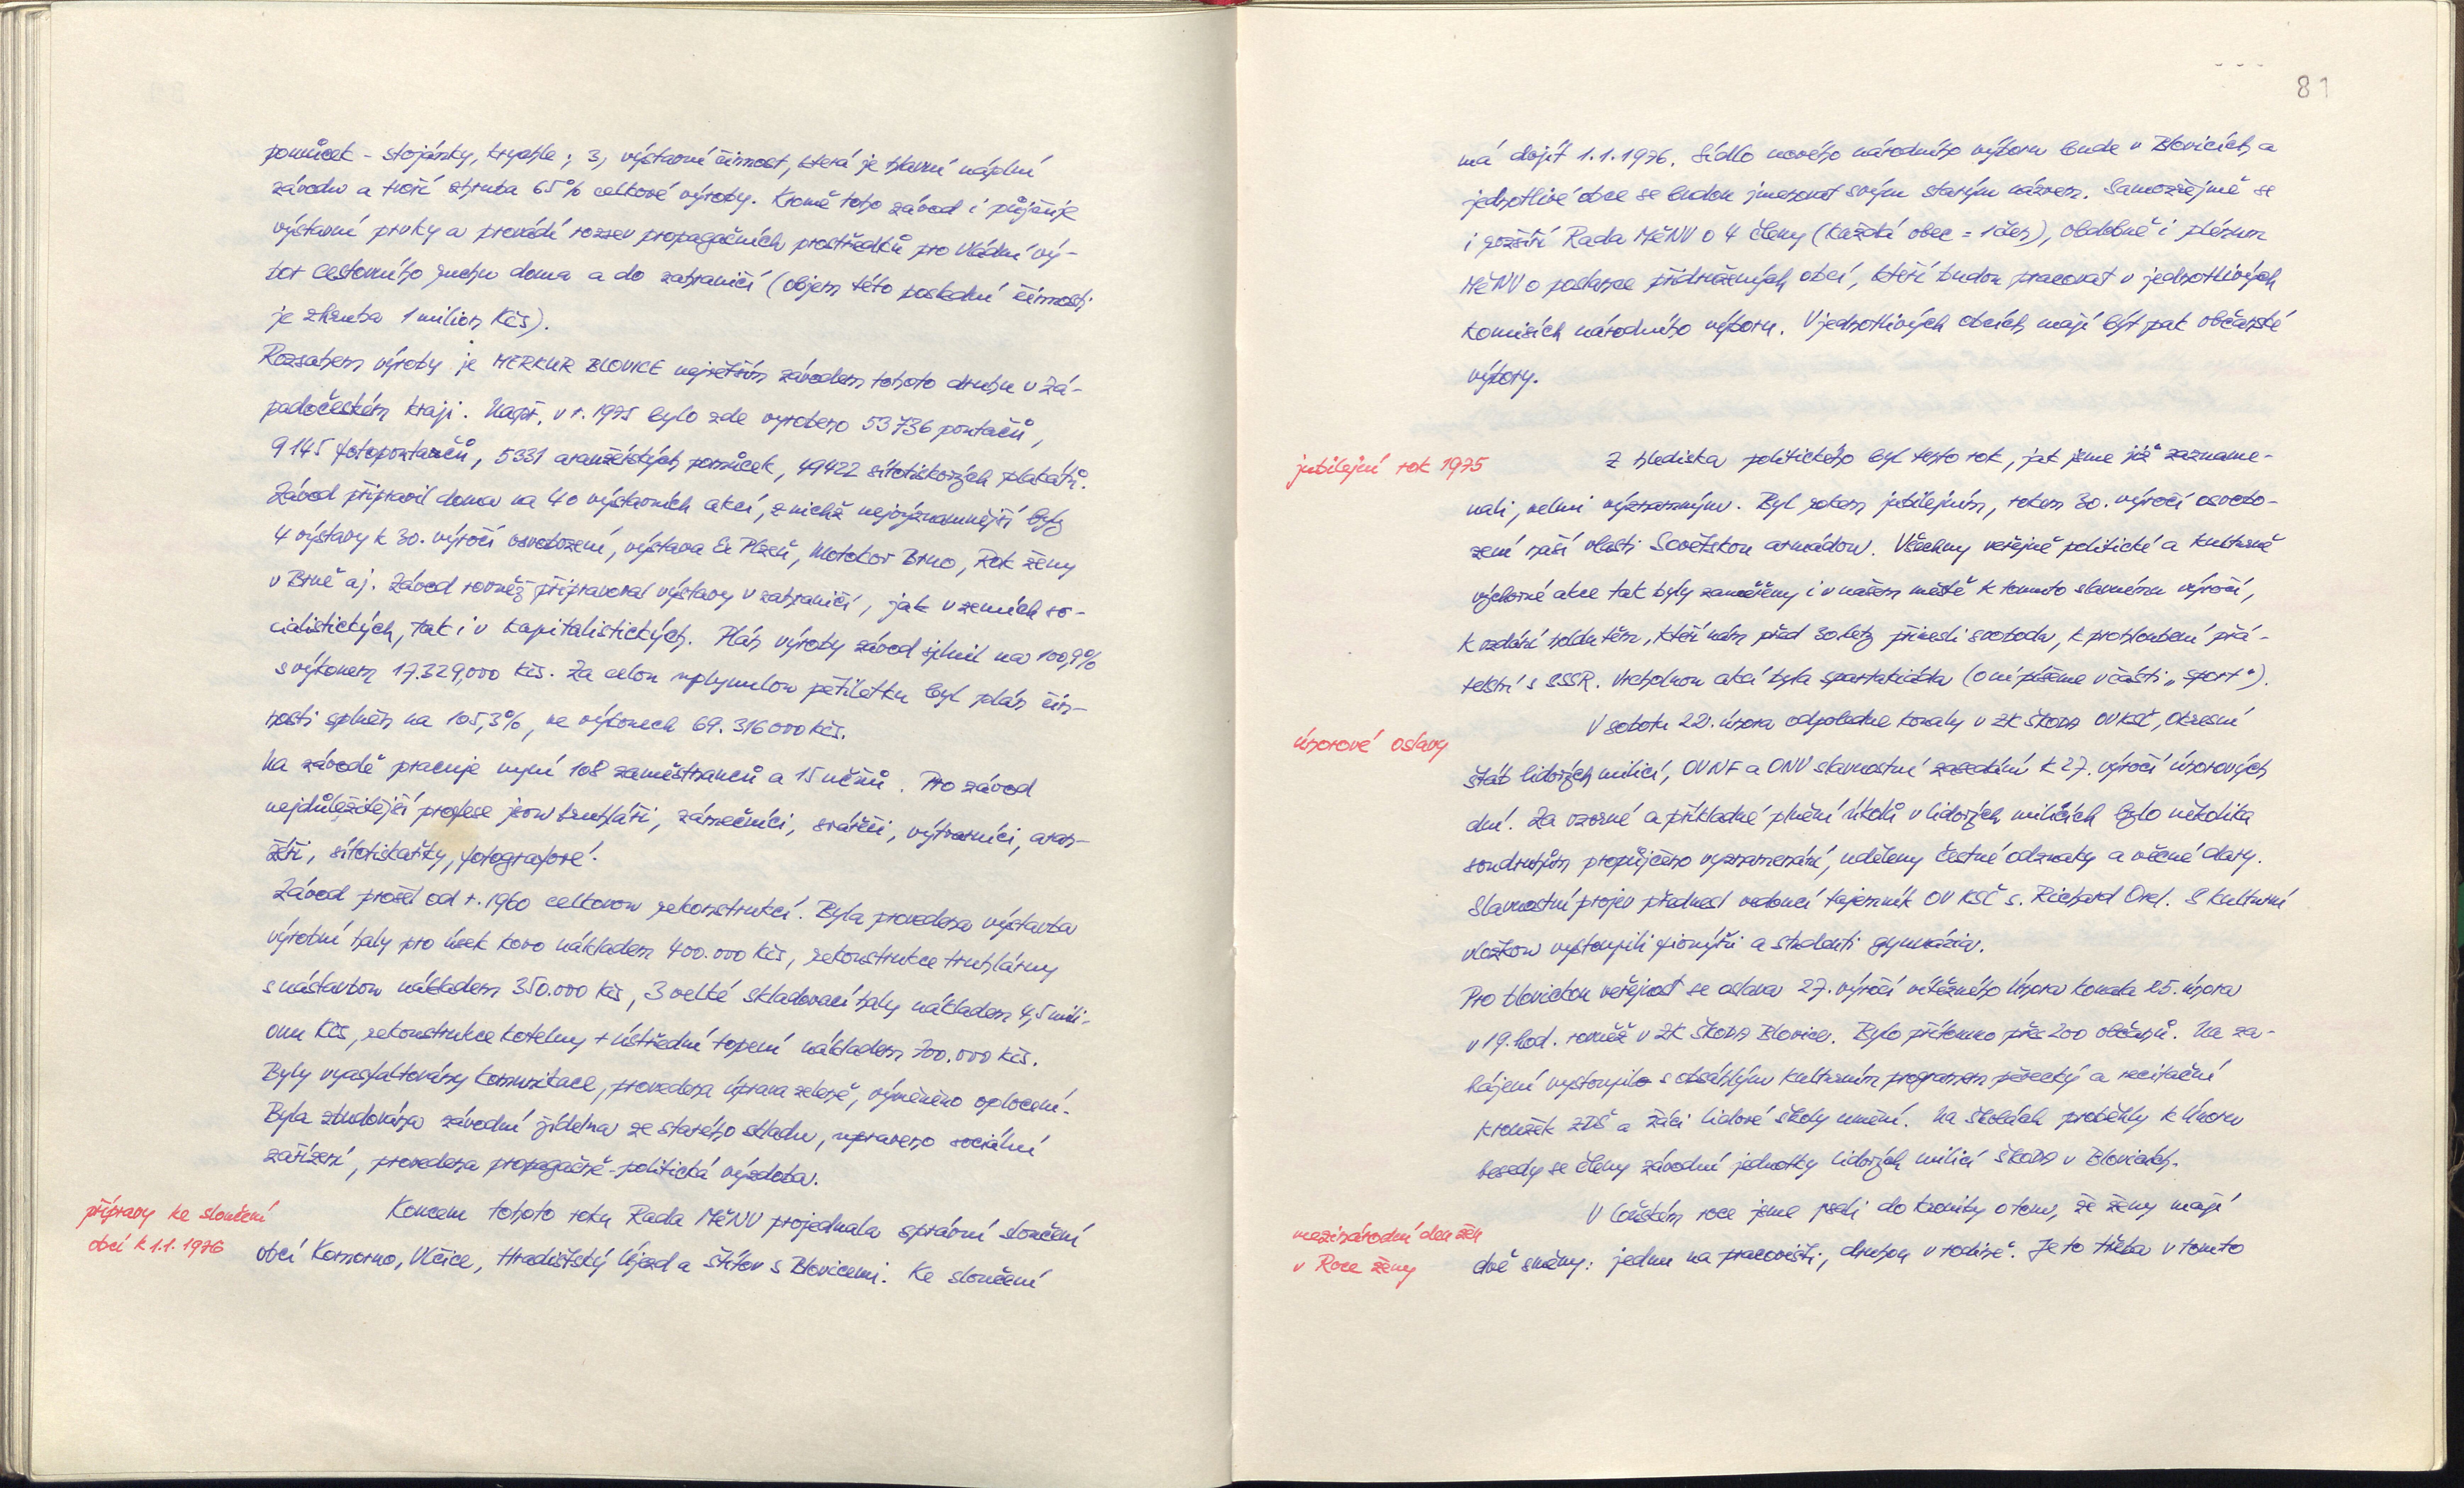 pomůcek - stojánky, krychle; 3, výstavní činnost, která je hlavní náplní
závodu a tvoří zhruba 65% celkové výroby. Kromě toho závod i půjčuje
výstavní prvky a provádí rozsev propagačních prostředků pro Vládní vý-
bor cestovního ruchu doma a do zahraničí (objem této poslední činnosti
je zhruba 1 milion Kčs).
Rozsahem výroby je MERKUR BLOVICE největším závodem tohoto druhu v Zá-
padočeském kraji. Např. v r. 1975 bylo zde vyrobeno 53736 poutačů,
9145 fotopoutačů, 5331 aranžérských pomůcek, 49422 sítotiskových plakátů.
Závod připravil doma na 40 výstavních akcí, z nichž nejvýznamnější byly
4 výstavy k 30. výročí osvobození, výstava Ex Plzeň, Motokov Brno, Rok ženy
v Brně aj. Závod rovněž připravoval výstavy v zahraničí, jak v zemích so-
cialistických, tak i v kapitalistických. Plán výroby závod splnil na 100,9%
s výkonem 17.329,000 Kčs. Za celou uplynulou pětiletku byl plán čin-
nosti splněn na 105,3%, ve výkonech 69.316000 Kčs.
Na závodě pracuje nyní 108 zaměstnanců a 15 učňů. Pro závod
nejdůležitější profese jsou truhláři, zámečníci, svářeči, výtvarníci, aran-
žéři, sítotiskařky, fotografové.
Závod prošel od r. 1960 celkovou rekonstrukcí. Byla provedena výstavba
výrobní haly pro úsek kovo nákladem 400.000 Kčs, rekonstrukce truhlárny
s nástavbou nákladem 350.000 Kčs, 3 velké skladovací haly nákladem 4,5 mili-
onu Kčs, rekonstrukce kotelny + ústřední topení nákladem 700.000 Kčs.
Byly vyasfaltovány komunikace, provedena úprava zeleně, výměněno oplocení.
Byla zbudována závodní jídelna ze starého skladu, upraveno sociální
zařízení, provedena propagačně-politická výzdoba.
přípravy ke sloučení
obcí k 1.1. 1976
Koncem tohoto roku Rada MěNV projednala správní sloučení
obcí Komorno, Vlčice, Hradišťský Újezd a Štítov s Blovicemi. Ke sloučení
81
má dojít 1.1.1976. Sídlo nového národního výboru bude v Blovicích a
jednotlivé obce se budou jmenovat svým starým názvem. Samozřejmě se
i rozšíří Rada MěNV o 4 členy (každá obec = 1 člen), obdobně i plénum
MěNV o poslance přidružených obcí, kteří budou pracovat v jednotlivých
komisích národního výboru. V jednotlivých obcích mají být pak občanské
výbory.
jubilejní rok 1975
Z hlediska politického byl tento rok, jak jsme již zazname-
nali, velmi významným. Byl rokem jubilejním, rokem 30. výročí osvobo-
zení naší vlasti Sovětskou armádou. Všechny veřejně politické a kulturně
výchovné akce tak byly zaměřeny i v našem městě k tomuto slavnému výročí,
k vzdání holdu těm, kteří nám před 30 lety přinesli svobodu, k prohloubení přá-
telství s SSSR. Vrcholnou akcí byla spartakiáda (o ní píšeme v části „sport").
únorové oslavy
V sobotu 22. února odpoledne konaly v ZK ŠKODA OV KSČ, Okresní
štáb lidových milicí, OVNF a ONV slavnostní zasedání k 27. výročí únorových
dní. Za vzorné a příkladné plnění úkolů v lidových milicích bylo několika
soudruhům propůjčeno vyznamenání, uděleny čestné odznaky a věcné dary.
Slavnostní projev přednesl vedoucí tajemník OV KSČ s. Richard Orel. S kulturní
vložkou vystoupili pionýři a studenti gymnázia.
Pro blovickou veřejnost se oslava 27. výročí vítězného Února konala 25. února
v 19. hod. rovněž v ZK ŠKODA Blovice. Bylo přítomno přes 200 občanů. Na za-
hájení vystoupilo s obsáhlým kulturním programem pěvecký a recitační
kroužek ZDŠ a žáci lidové školy umění. Na školách proběhly k Únoru
besedy se členy závodní jednotky lidových milicí ŠKODA v Blovicích.
mezinárodní den žen
v Roce ženy
V loňském roce jsme psali do kroniky o tom, že ženy mají
dvě směny: jednu na pracovišti, druhou v rodině. Je to třeba v tomto